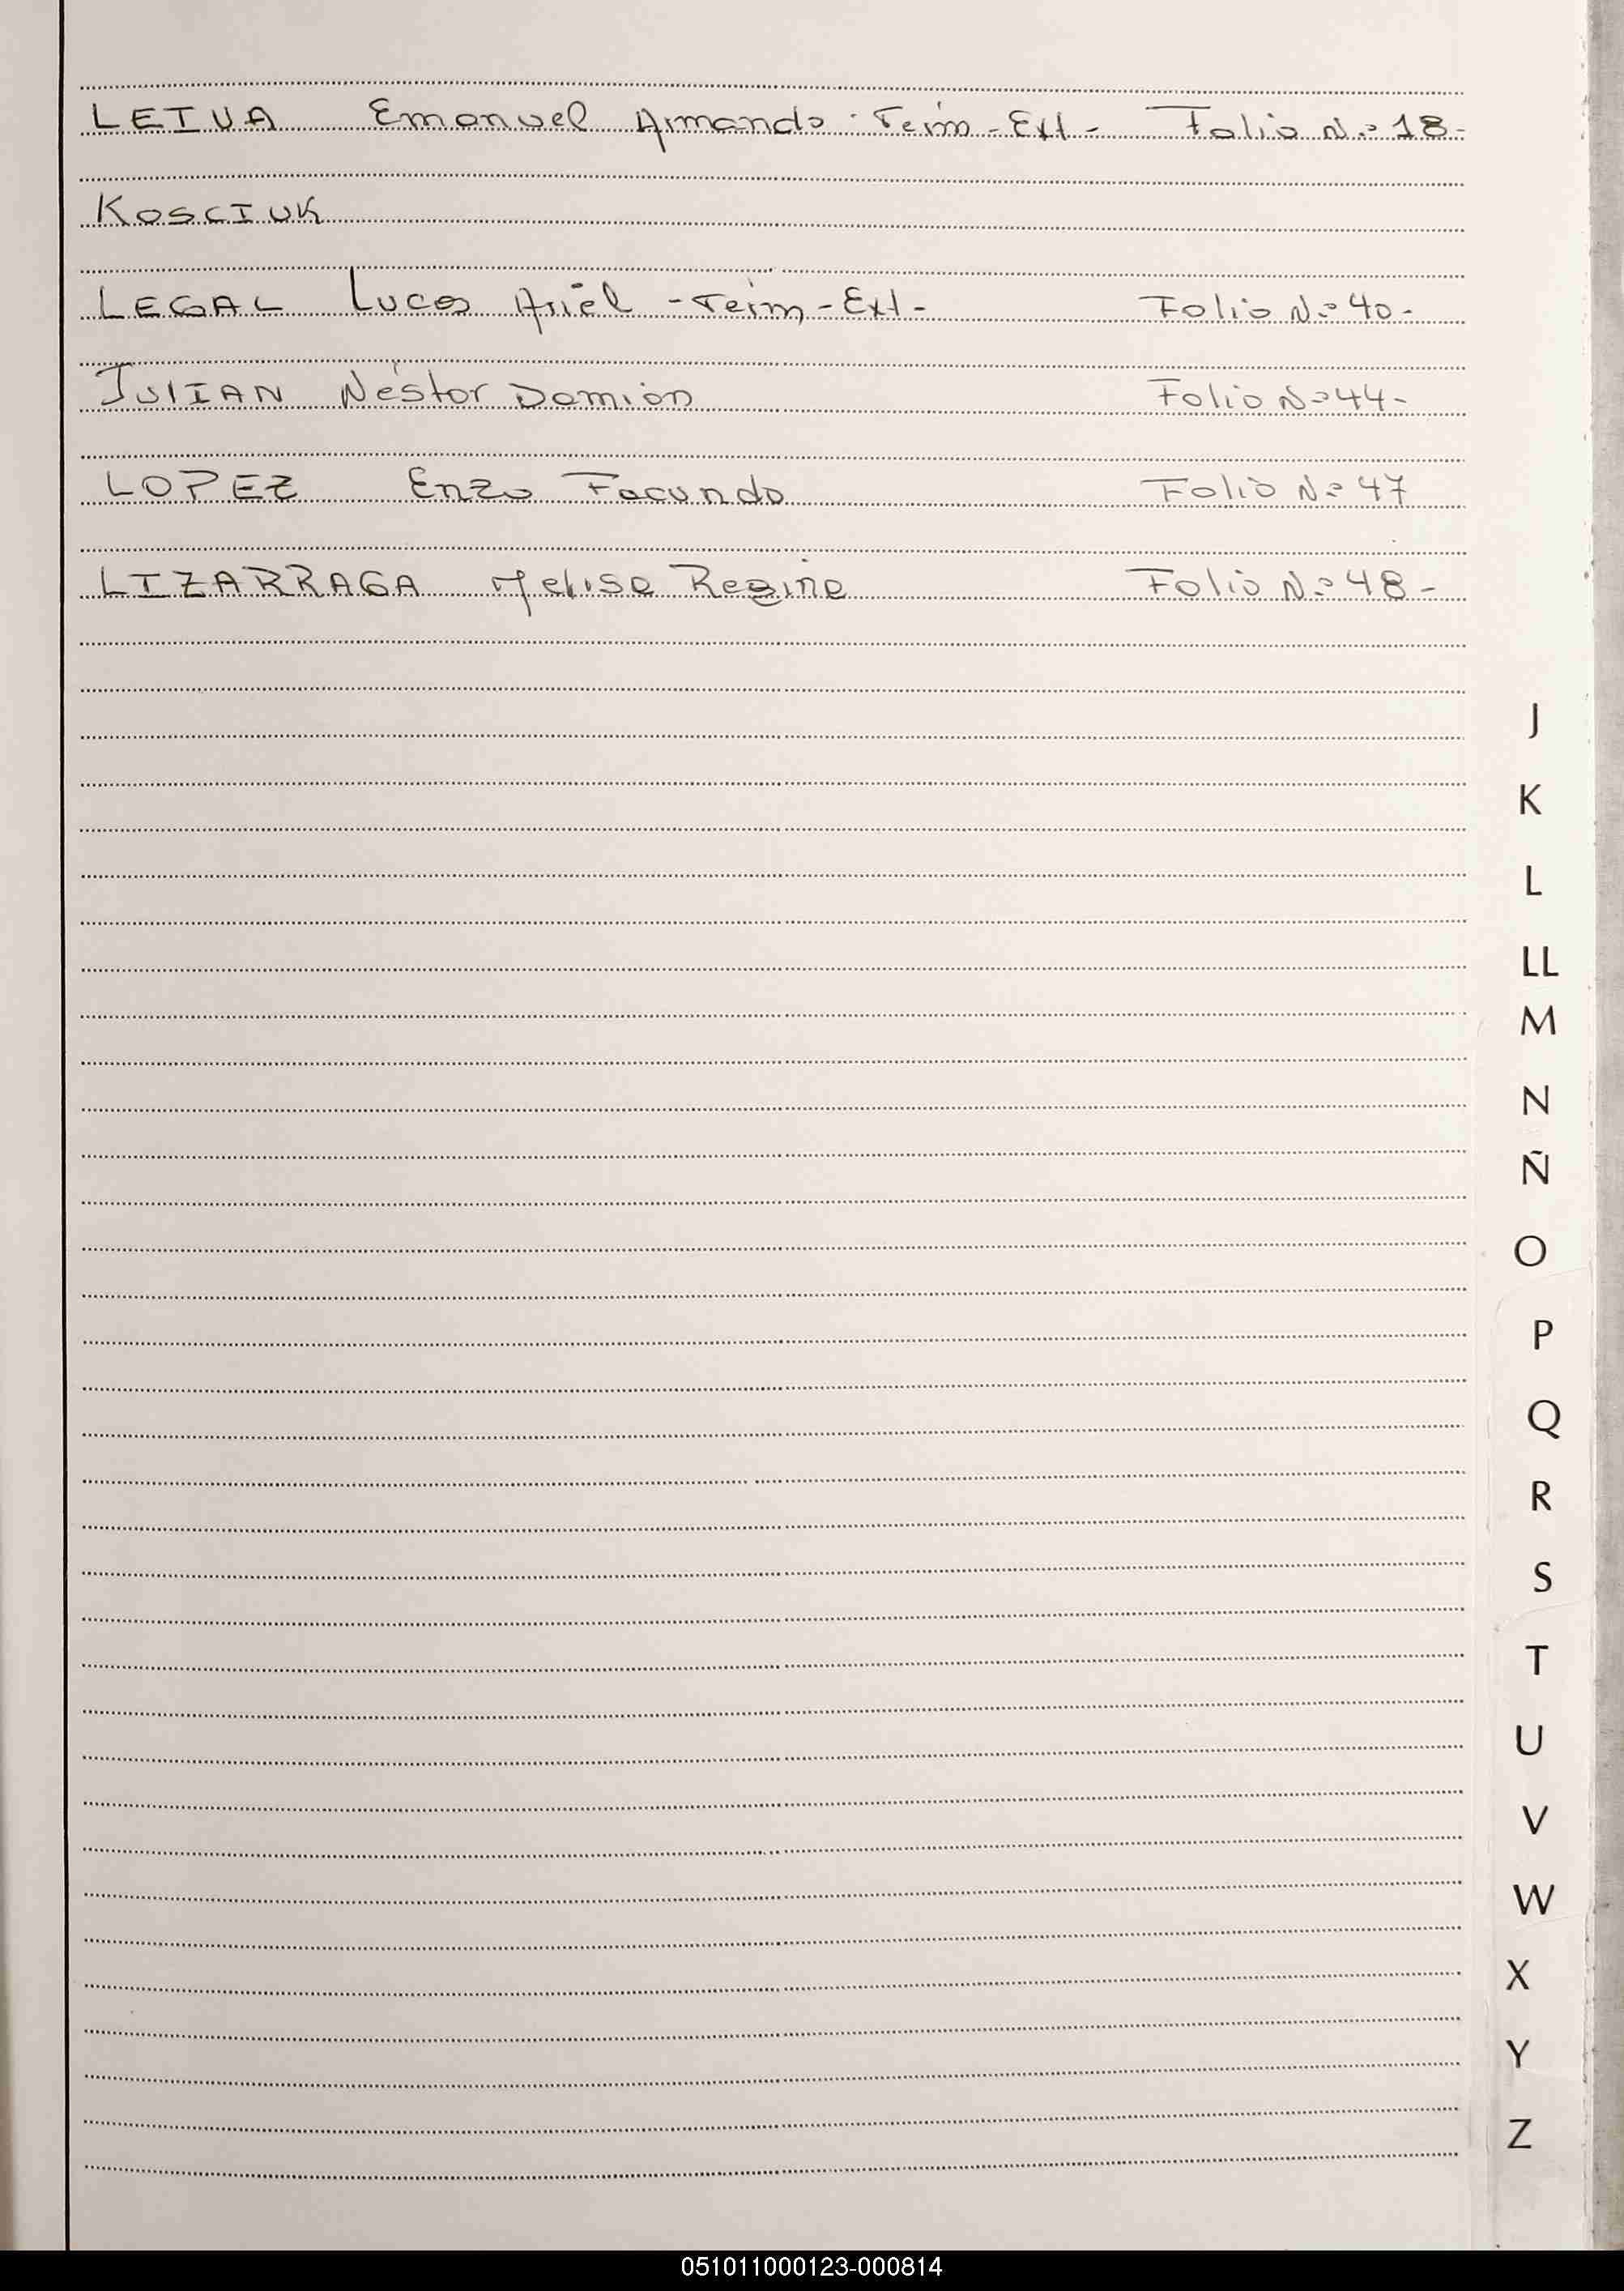 LEIVA Emanuel Armando - Teim - Ext - Folio N.º 18-
KOSCIUK
LEGAL Lucas Ariel - Teim - Ext - Folio N.º 40-
JULIAN Néstor Damián Folio N.º 44-
LOPEZ Enzo Facundo Folio N.º 47
LIZARRAGA Melisa Regina Folio N.º 48-
J
K
L
LL
M
N
Ñ
O
P
Q
R
S
T
U
V
W
X
Y
Z
051011000123-000814